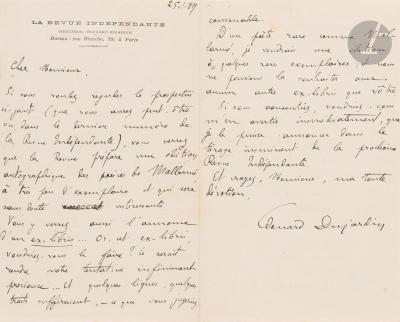 25.1.87
LA REVUE INDÉPENDANTE
DIRECTEUR: ÉDOUARD DUJARDIN
Bureau: rue Blanche, 79, à Paris
Cher Monsieur,
Si vous voulez regarder le prospectus
ci-joint (que vous aurez peut-être
vu dans le dernier numéro de
la Revue Indépendante), vous verrez
que la Revue prépare une édition
autographique des poésies de Mallarmé
à très peu d'exemplaires et qui sera
sans doute intéressante
Vous y verrez aussi l'annonce
d'un ex-libris... Or, cet ex-libris,
voudriez-vous le faire? Ce serait
rendre notre tentative infiniment
précieuse... Et quelques lignes, quelques
traits suffiraient, — ce que vous jugeriez
convenable.
D'un poète rare comme Mal-
larmé, je voudrais une édition
à quelques rares exemplaires, et nous
ne pouvons la souhaiter avec
aucun autre ex-libris que vôtre
Si vous consentiez, voudriez-vous
m'en avertir immédiatement, que
je le puisse annoncer dans le
tirage imminent de la prochaine
Revue Indépendante.
Et croyez, Monsieur, à ma toute
dévotion,
Edouard Dujardin